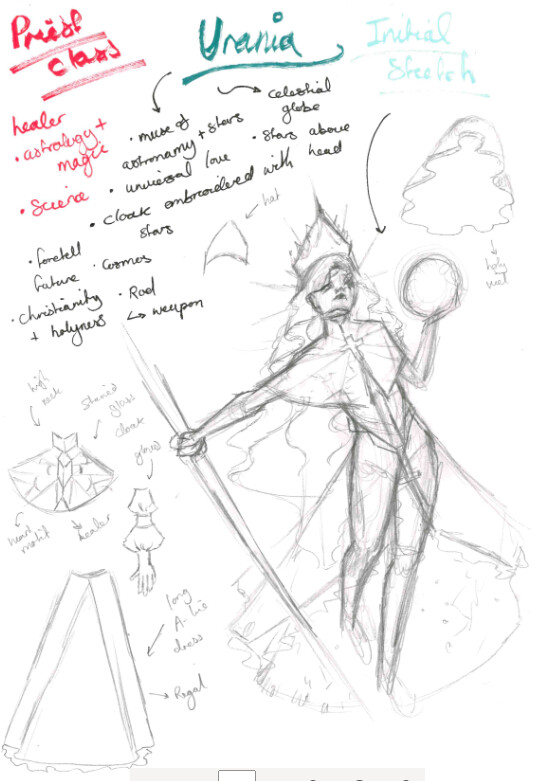 Priest
class
Urania
Initial
Sketch
healer
• astrology +
magic
• Science
• foretell
future
• Christianity
+ holyness
• muse of
astronamy + stars
• universal love
• cloak embroidered with
stars
• Cosmos
• Rod
weapon
celestial
globe
• Stars above
head
hat
holy
veil
high
neck
Stained
glass
cloak
glove
heart
motif
healer
long
A-line
dress
Regal